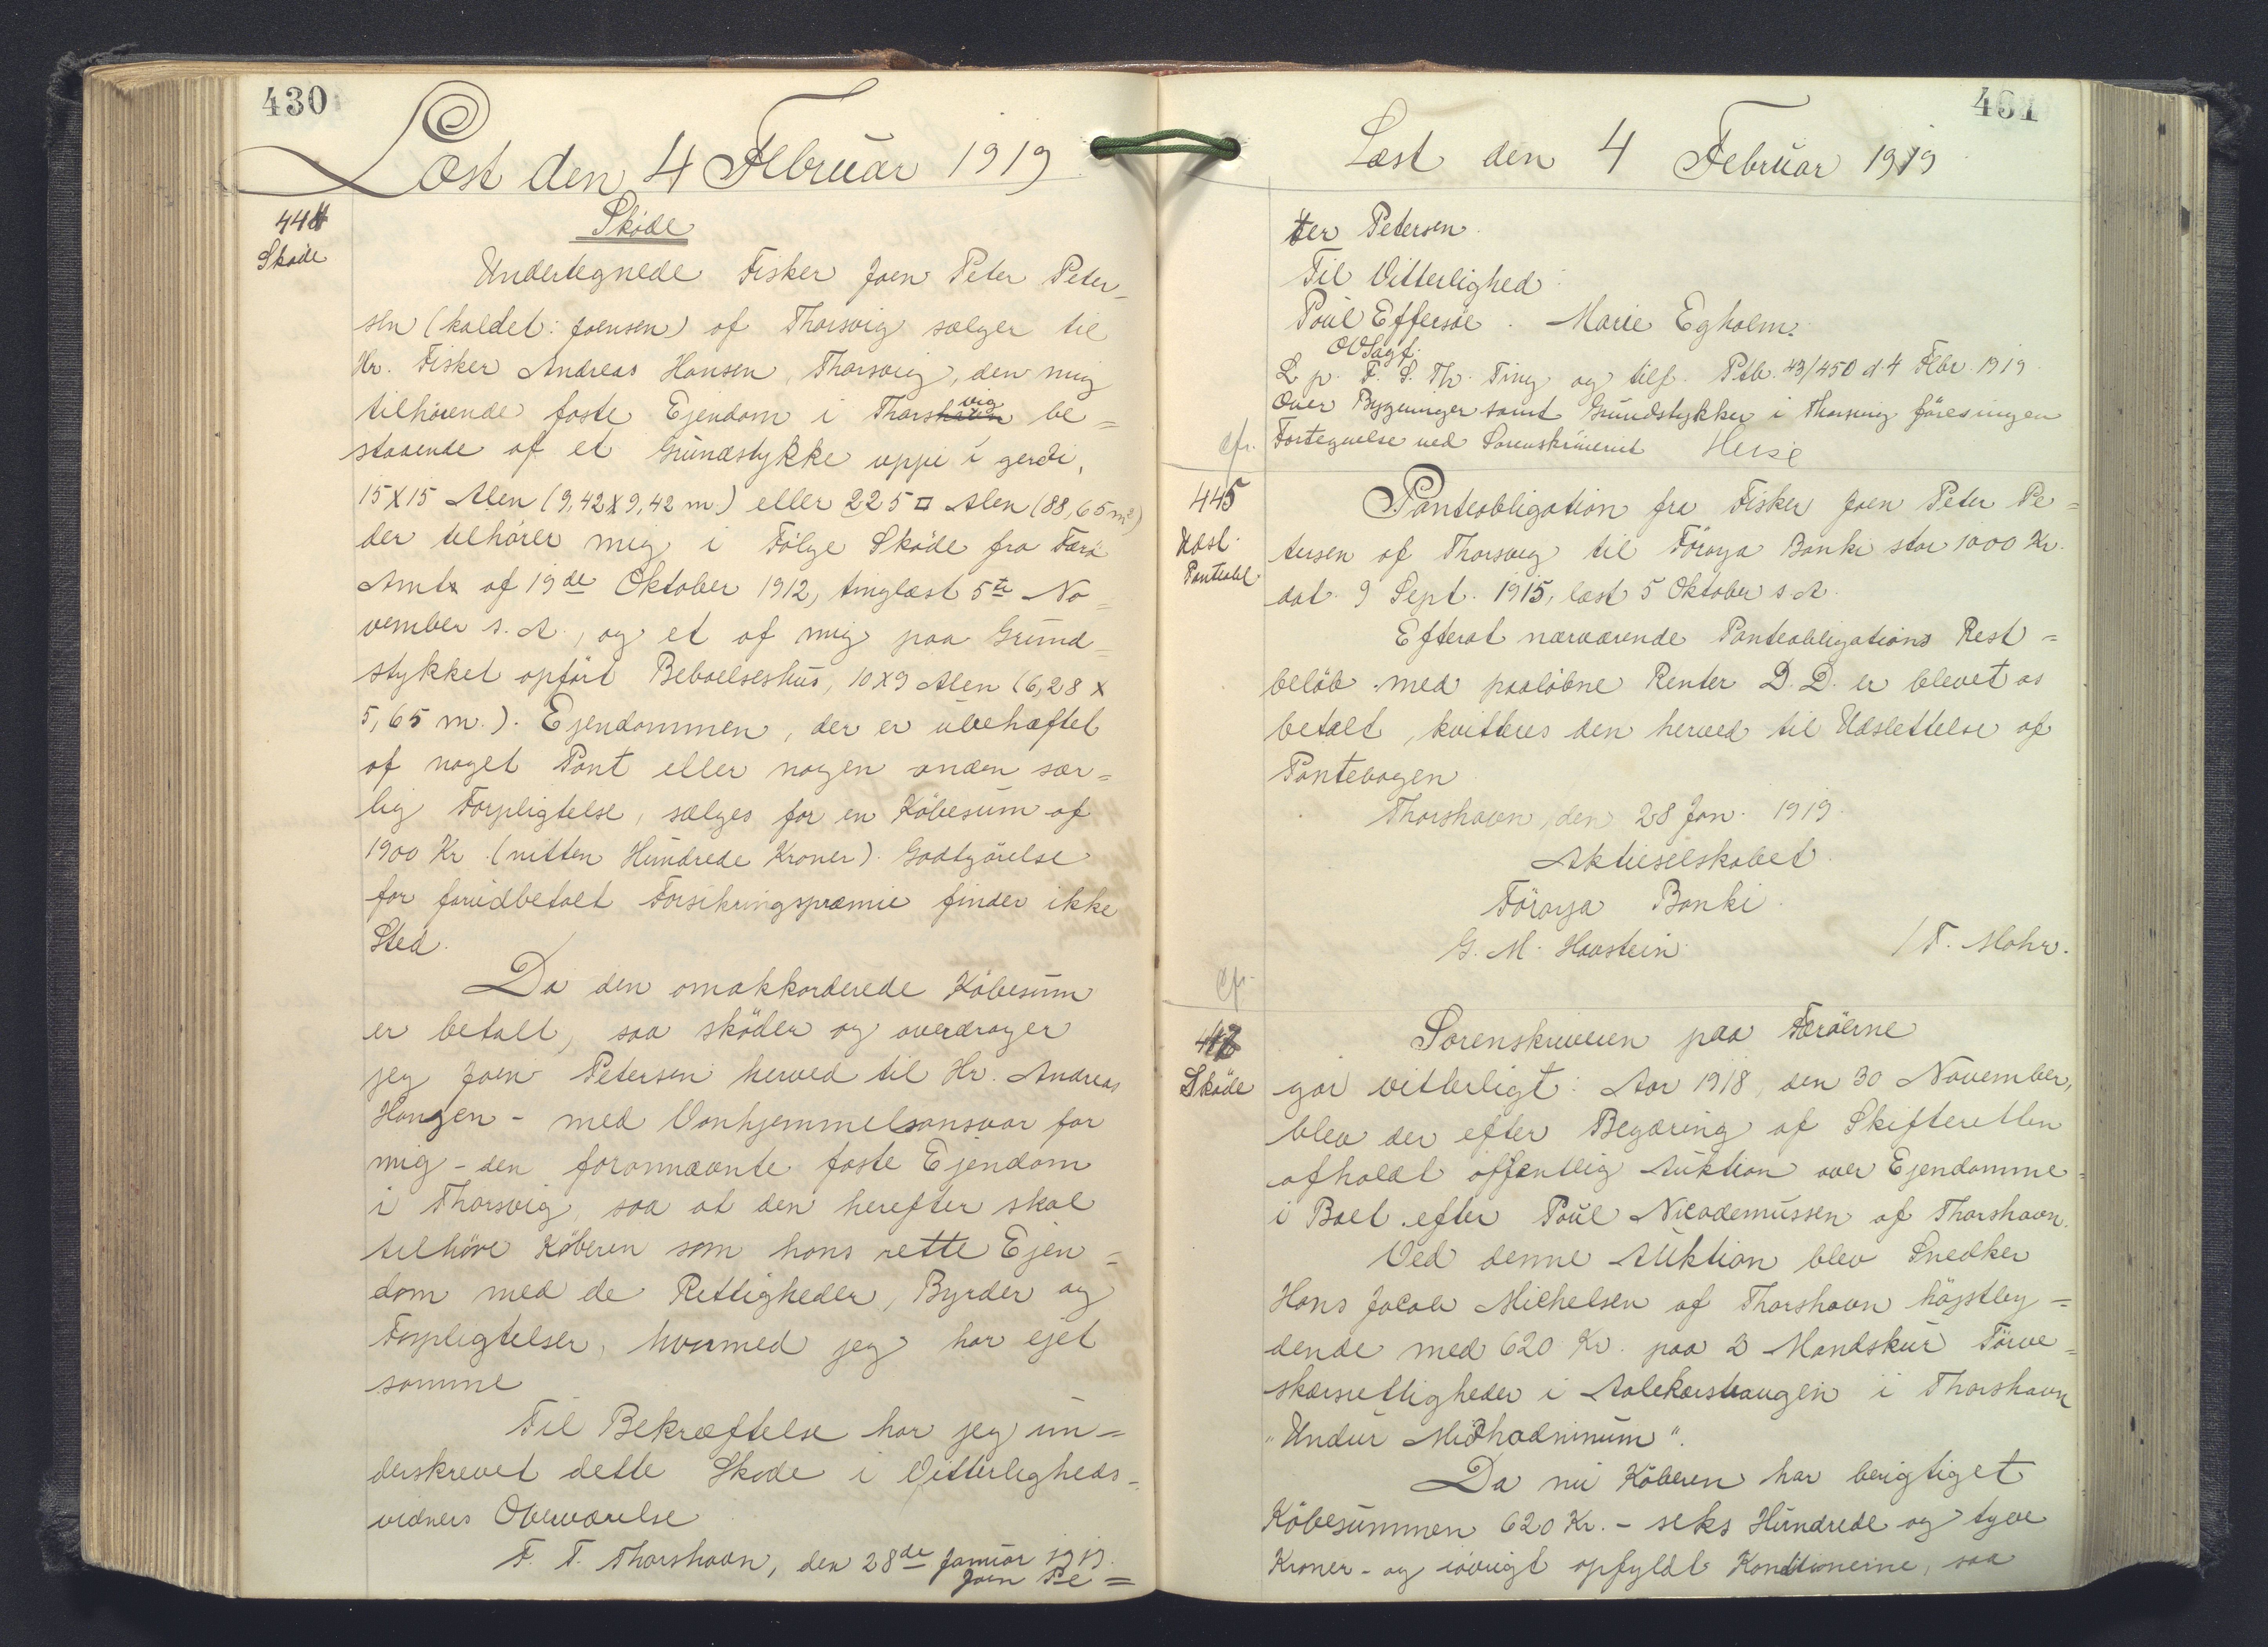 430
Læst den 4 Februar 1919
444
Skøde
Sköde
Undertegnede Fisker Joen Peter Peter-
sen (kaldet: Joensen) af Thorsvig sælger til
Hr. Fisker Andreas Hansen, Thorsvig, den mig
tilhörende faste Ejendom i Thorshavn vig be=
staaende af et Grundstykke uppi i gerdi,
15X15 Alen (9,42X9,42 m.) eller 225 □ Alen (88,65 m²)
der tilhörer mig i Fölge Sköde fra Færö
Amt af 19de Oktober 1912, tinglæst 5te No=
vember s. A., og et af mig paa Grund=
stykket opfört Beboelseshus, 10X9 Alen (6,28 x
5,65 m.). Ejendommen, der er ubehæftet
af noget Pant eller nogen anden sær=
lig Forpligtelse, sælges for en Köbesum af
1900 Kr. (nitten Hundrede Kroner). Godtgörelse
for forudbetalt Forsikringspræmie finder ikke
Sted.
Da den omakkorderede Köbesum
er betalt, saa sköder og overdrager
jeg Joen Petersen herved til Hr. Andreas
Hansen - med Vanhjemmelsansvar for
mig - den forannævnte faste Ejendom
i Thorsvig, saa at den herefter skal
tilhöre Köberen som hans rette Ejen=
dom med de Rettigheder, Byrder og
Forpligtelser, hvormed jeg har ejet
samme
Til Bekræftelse har jeg un=
derskrevet dette Skøde i Vitterligheds-
vidners Overværelse
F. T. Thorshavn, den 28de Januar 1919.
Joen Pe=
431
Læst den 4 Februar 1919
ter Petersen.
Til Vitterlighed:
Poul Effersöe. Marie Egholm.
OVSagf.
L. p. F. S. Th. Ting og tilf. Ptb. 43/450 d. 4 Febr. 1919.
Over Bygninger samt Grundstykker i Thorsvig föres ingen
cfr. Fortegnelse ved Sorenskriveriet Heise
445
Udsl.
Panteobl
Panteobligation fra Fisker Joen Peter Pe=
tersen af Thorsvig til Föroya Banki stor 1000 Kr.
dat. 9 Sept. 1915, læst 5 Oktober s. A.
Efterat nærværende Panteobligations Rest=
belöb med paalöbne Renter D. D. er blevet os
betalt, kvitteres den herved til Udslettelse af
Pantebogen
Thorshavn, den 28 Jan. 1919.
Aktieselskabet
Föroya Banki.
G. M. Havstein. / T. Mohr.
cfr.
Skøde
Sorenskriveren paa Færöerne
gör vitterligt: Aar 1918, den 30 November,
blev der efter Begæring af Skifteretten
afholdt offentlig Auktion over Ejendomme=
i Boet efter Poul Nicodemussen af Thorshavn.
Ved denne Auktion blev Snedker
Hans Jacob Michelsen af Thorshavn höjstby=
dende med 620 Kr. paa 2 Mandskur Törve=
skærsrettigheder i Aalekærshaugen i Thorshavn
"Undur Miðhadninum".
Da nu Köberen har berigtiget
Köbesummen 620 Kr. - seks Hundrede og tyve
Kroner - og iövrigt opfyldt Konditionerne, saa